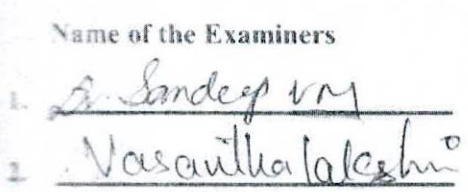 Name of the Examiners
1. Dr. Sandeep VM
2. Vasanthalakshmi